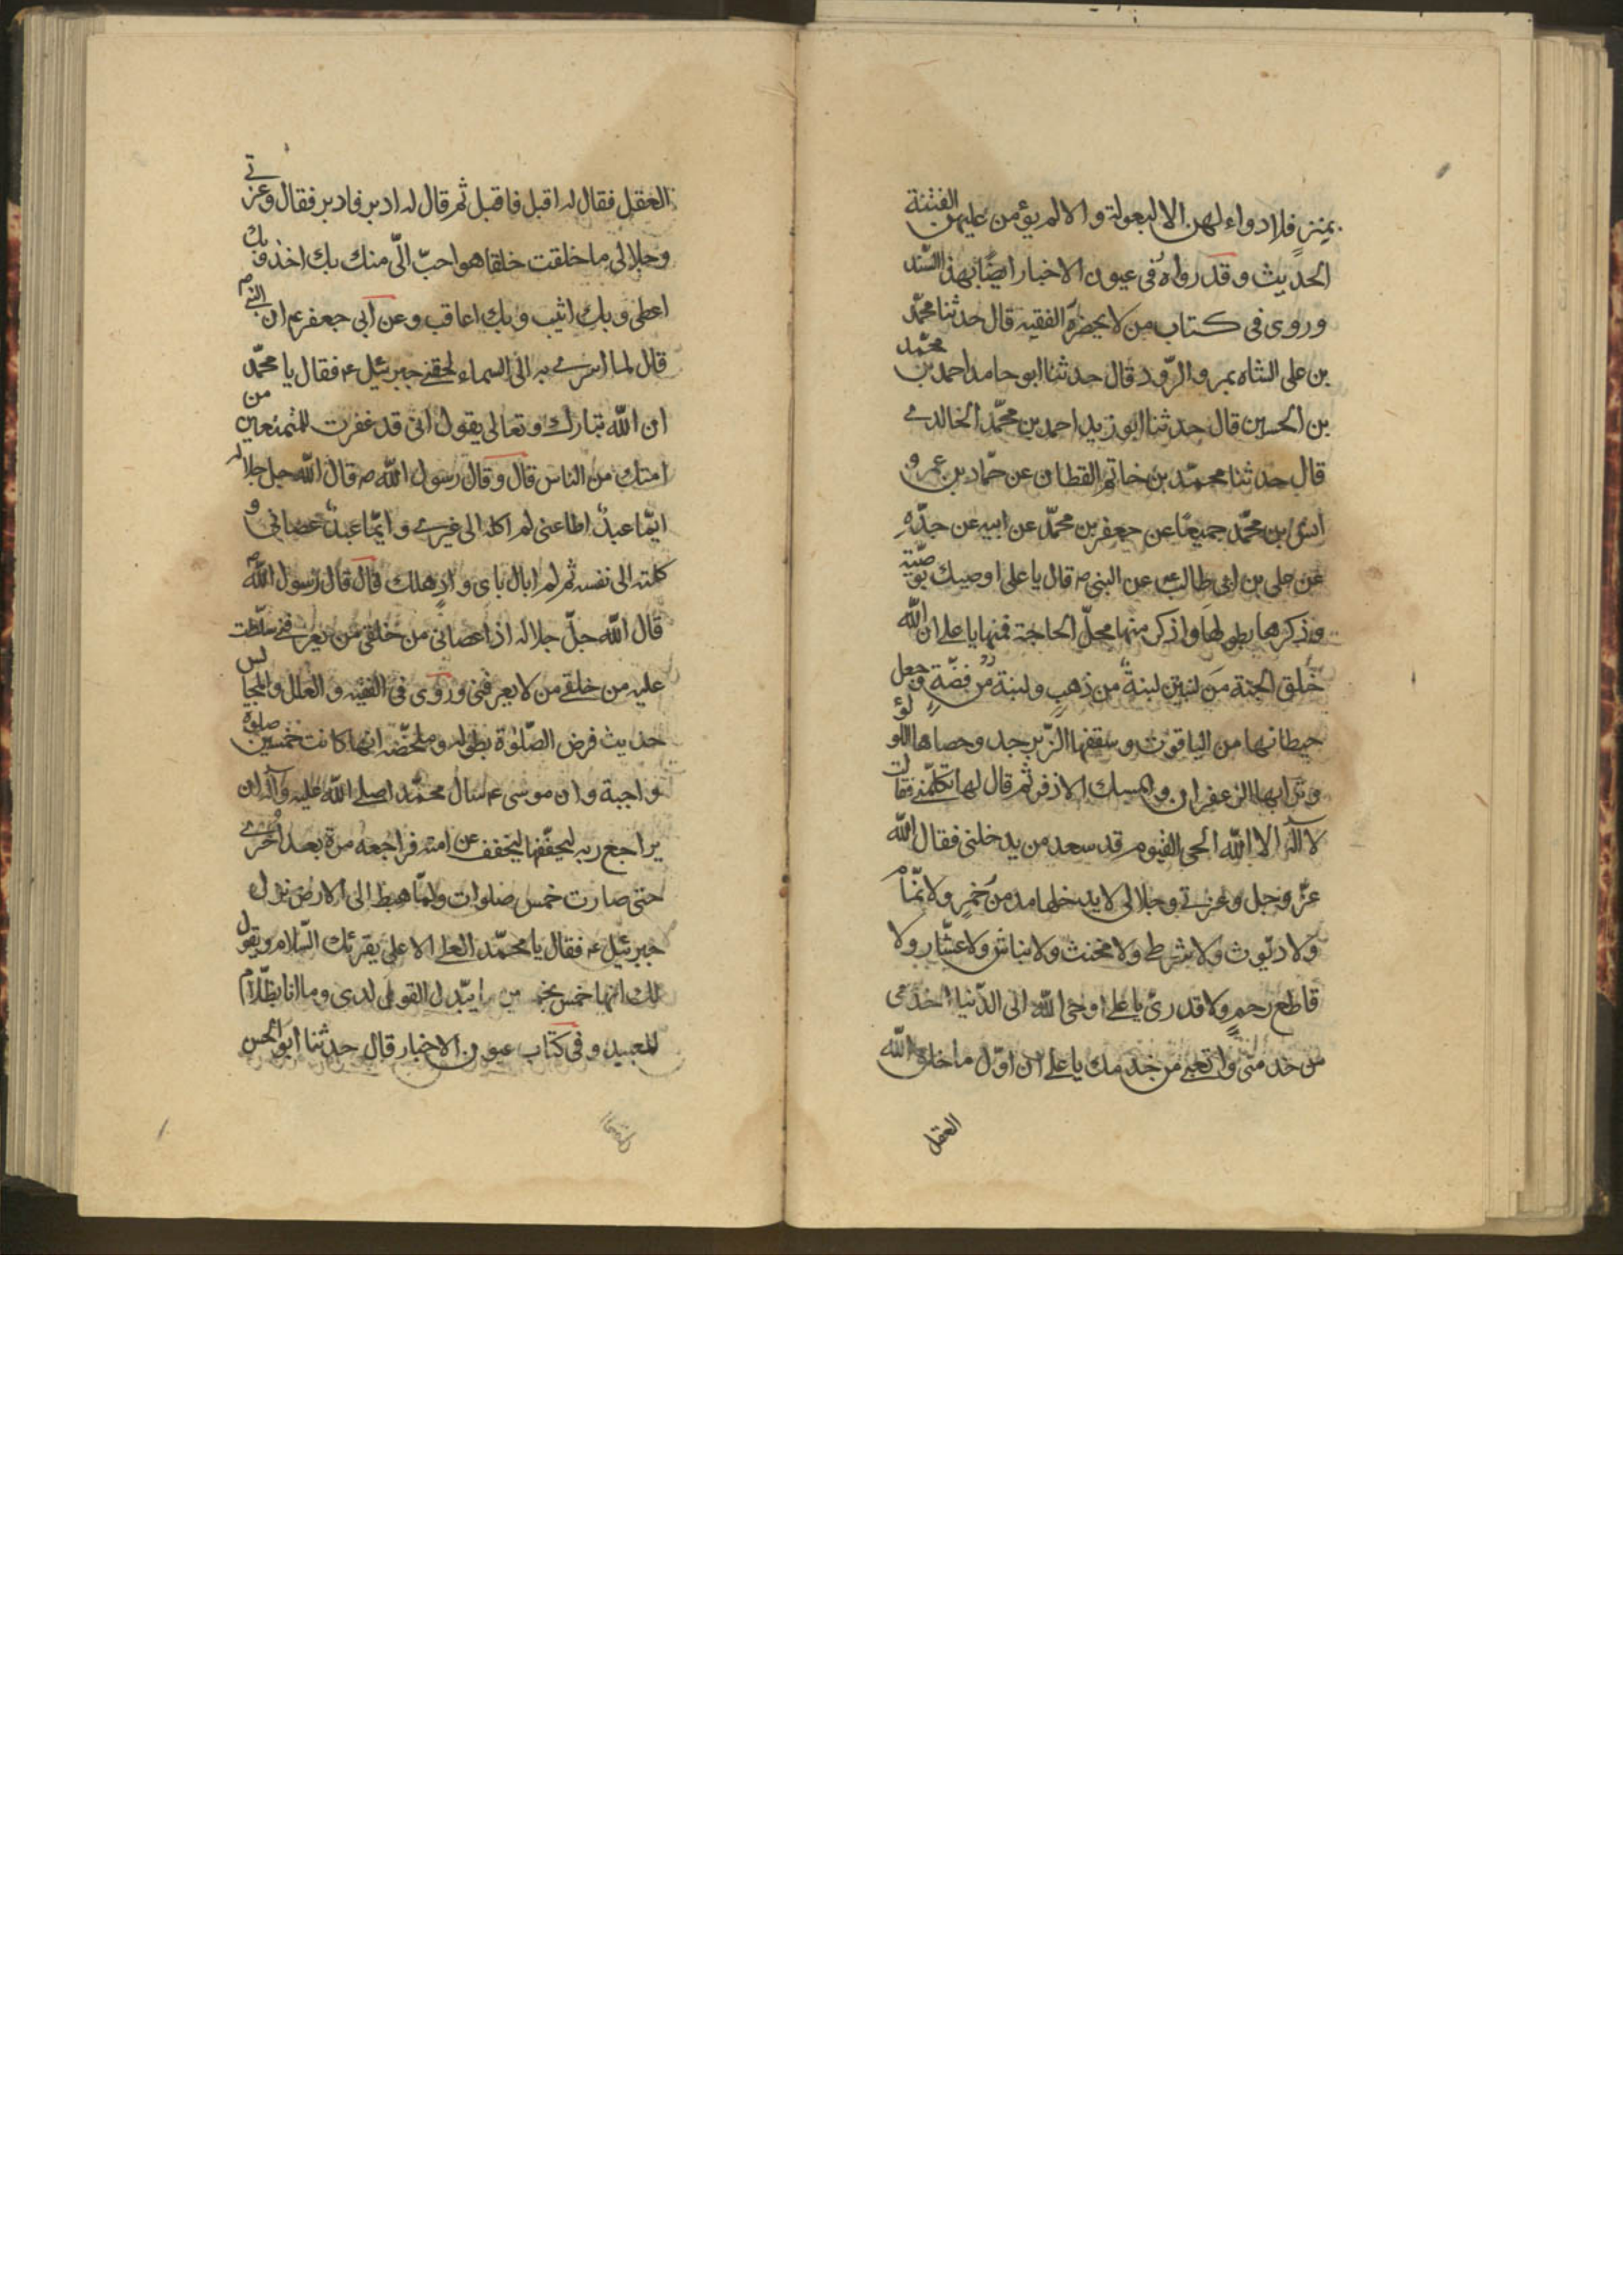 بمنزلة فلا دواء لهن الا البعولة والا لم يؤمن عليهن الفتنة
الحديث وقد رواه فى عيون الاخبار ايضًا بهذا السند
وروى فى كتاب من لا يحضره الفقيه قال حدثنا محمّد
بن على الشاه بمرو الرّود قال حدثنا ابو حامد احمد بن محمّد
بن الحسين قال حدثنا ابو زيد احمد بن محمّد الخالدى
قال حدثنا محمّد بن حاتم القطان عن حمّاد بن عمرو
انس بن محمّد جميعًا عن جعفر بن محمّد عن ابيه عن جدّه
عن على بن ابى طالب ع عن النبى ص قال يا على اوصيك بوصيّة
وذكرها بطولها واذكر منها محلّ الحاجة فمنها يا على ان الله
خلق الجنة من لبنتين لبنةٌ من ذهبٍ ولبنة من فضّةٍ وجعل
حيطانها من الياقوت وسقفها الزّبرجد وحصاها اللؤلؤ
وترابها الزعفران والمسك الاذفر ثم قال لها تكلّمى فقالت
لا اله الا الله الحى القيوم قد سعد من يدخلنى فقال الله
عزّ وجل وعزتى وجلالى لا يدخلها مدمن خمرٍ ولا نمّام
ولا ديّوث ولا شرطى ولا مخنث ولا نباش ولا عشّار ولا
قاطع رحمٍ ولا قدرىّ يا على اوحى الله الى الدّنيا اخدمى
من خدمنى واتعبى من خدمك يا على ان اوّل ما خلق الله
العقل
العقل فقال له اقبل فاقبل ثم قال له ادبر فادبر فقال وعزتى
وجلالى ما خلقت خلقا هو احبّ الىّ منك بك اخذ وبك
اعطى وبك اثيب وبك اعاقب وعن ابى جعفر ع ان النبى ص
قال لما اسرى به الى السماء لحقنى جبرئيل ع فقال يا محمّد
ان الله تبارك وتعالى يقول انى قد غفرت للمتمتعين من
امتك من الناس قال وقال رسول الله ص قال الله جل جلاله
ايّما عبدٌ اطاعنى لم اكله الى غيرى وايّما عبدٌ عصانى و
كلته الى نفسه ثم لم ابال باى وادٍ هلك قال قال رسول الله ص
قال الله جلّ جلاله اذا عصانى من خلقى من يعرفنى سلّطت
عليه من خلقى من لا يعرفنى وروى فى الفقيه والعلل والمجالس
حديث فرض الصّلوة بطوله وملخّصه انها كانت خمسين صلوة
واجبة وان موسى ع سال محمّدا صلى الله عليه وآله ان
يراجع ربه ليخفّفها ليخفف عن امته فراجعه مرة بعد اخرى
حتى صارت خمس صلوات ولمّا هبط الى الارض نزل
جبرئيل ع فقال يا محمّد العلى الاعلى يقرئك السّلام ويقول
لك انها خمس بخمسين ما يبّدل القول لدى وما انا بظلّام
للعبيد وفى كتاب عيون الاخبار قال حدثنا ابو الحسن